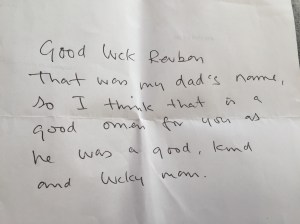 Good luck Reuben
That was my dad's name,
so I think that is a
good omen for you as
he was a good, kind
and lucky man.